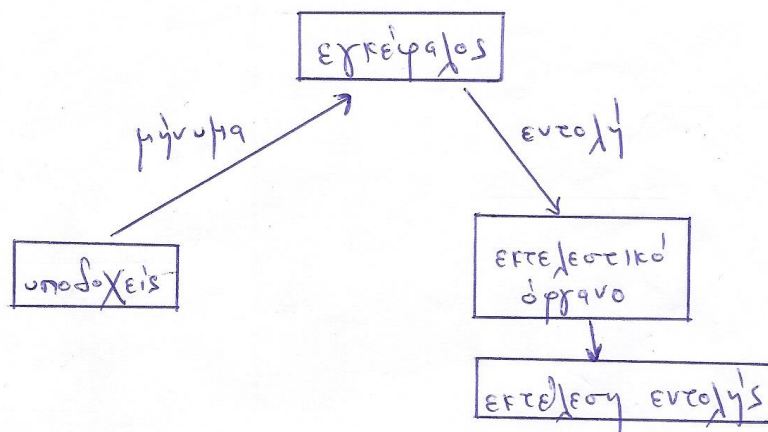 εγκέφαλος
μήνυμα
εντολή
υποδοχείς
εκτελεστικό
όργανο
εκτέλεση εντολής